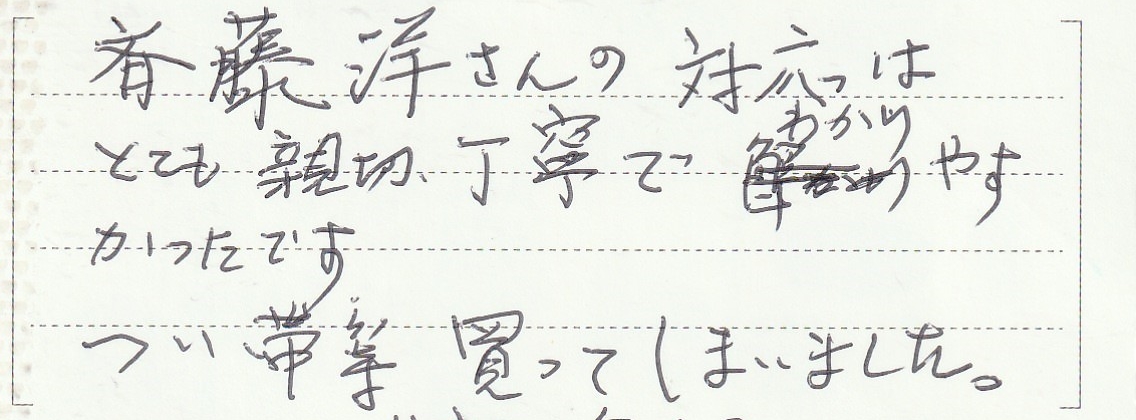 斉藤洋さんの対応は
とても親切、丁寧でわかりやす
かったです
つい帯等買ってしまいました。